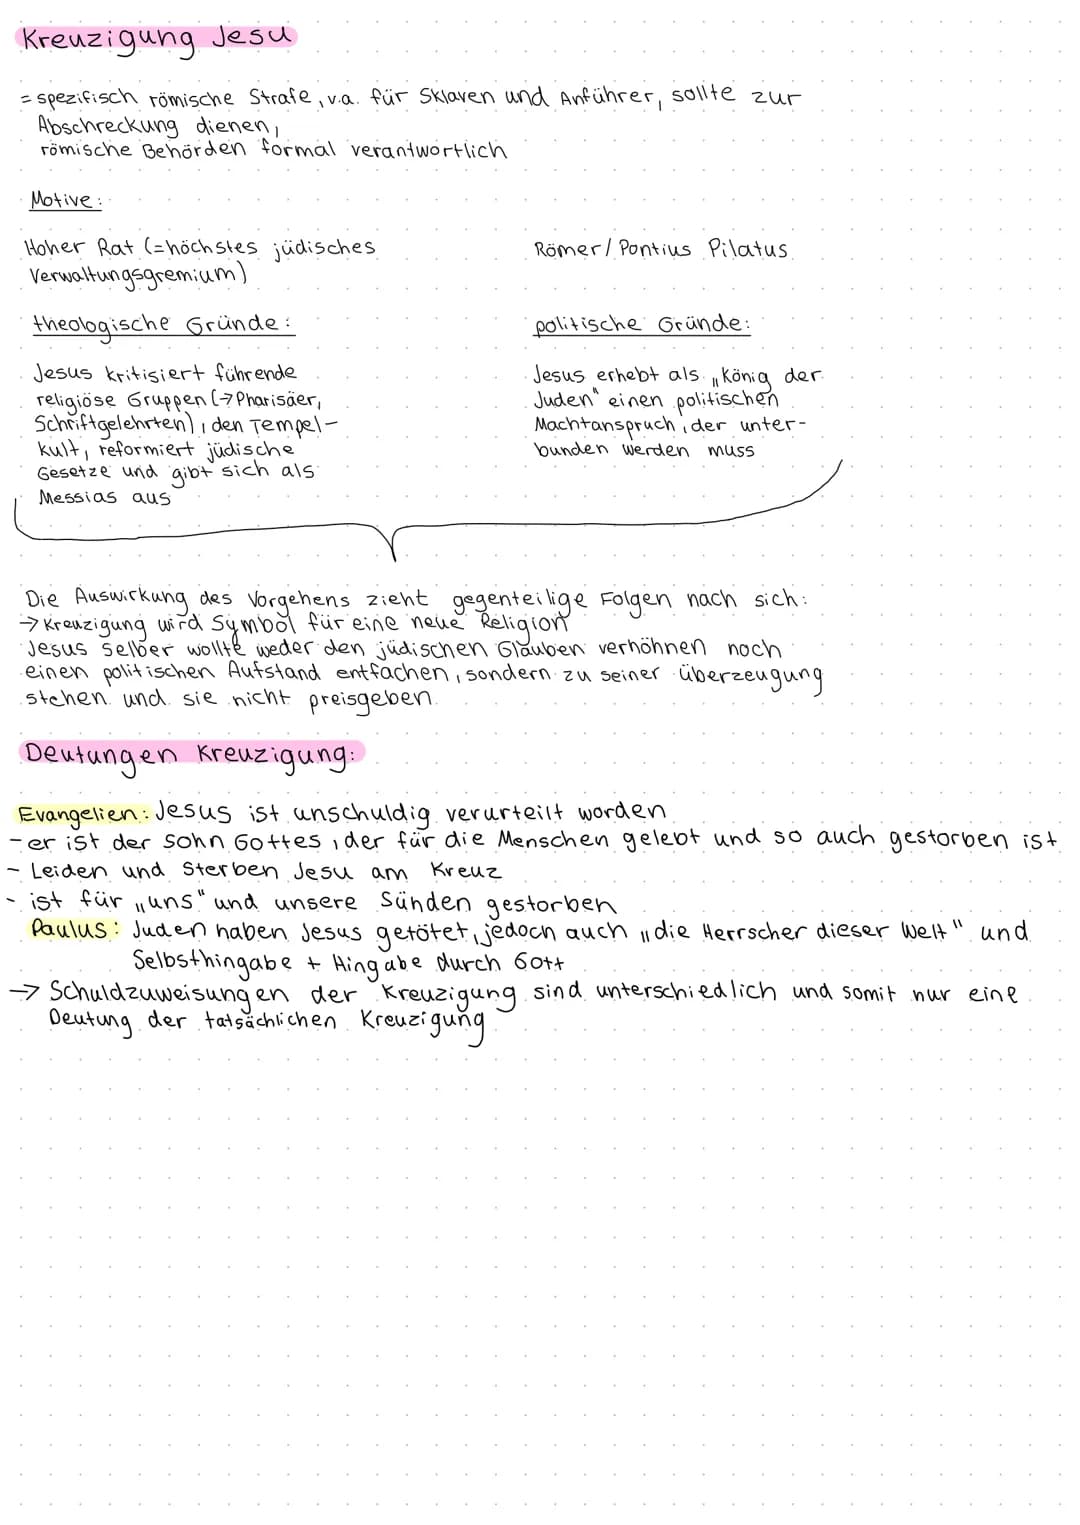 Kreuzigung Jesu
= spezifisch römische Strafe, v.a. für Sklaven und Anführer, sollte zur
Abschreckung dienen,
römische Behörden formal verantwortlich
Motive:
Hoher Rat (=höchstes jüdisches
Verwaltungsgremium)
theologische Gründe:
Jesus kritisiert führende
religiöse Gruppen (→Pharisäer,
Schriftgelehrten), den Tempel-
kult, reformiert jüdische
Gesetze und gibt sich als
Messias aus
Römer/Pontius Pilatus
politische Gründe:
Jesus erhebt als „König der
Juden" einen politischen
Machtanspruch, der unter-
bunden werden muss
Die Auswirkung des Vorgehens zieht gegenteilige Folgen nach sich:
→ Kreuzigung wird Symbol für eine neue Religion
Jesus selber wollte weder den jüdischen Glauben verhöhnen noch
einen politischen Aufstand entfachen, sondern zu seiner Überzeugung
stehen und sie nicht preisgeben
Deutungen Kreuzigung:
Evangelien: Jesus ist unschuldig verurteilt worden
- er ist der Sohn Gottes, der für die Menschen gelebt und so auch gestorben ist
- Leiden und Sterben Jesu am Kreuz
- ist für „uns" und unsere Sünden gestorben
Paulus: Juden haben Jesus getötet, jedoch auch „die Herrscher dieser Welt" und
Selbsthingabe + Hingabe durch Gott
→ Schuldzuweisungen der Kreuzigung sind unterschiedlich und somit nur eine
Deutung der tatsächlichen Kreuzigung